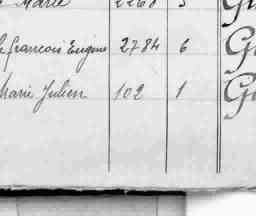 Marie 2268 3
le francois Eugène 2784 6 G
Marie Julien 102 1 G